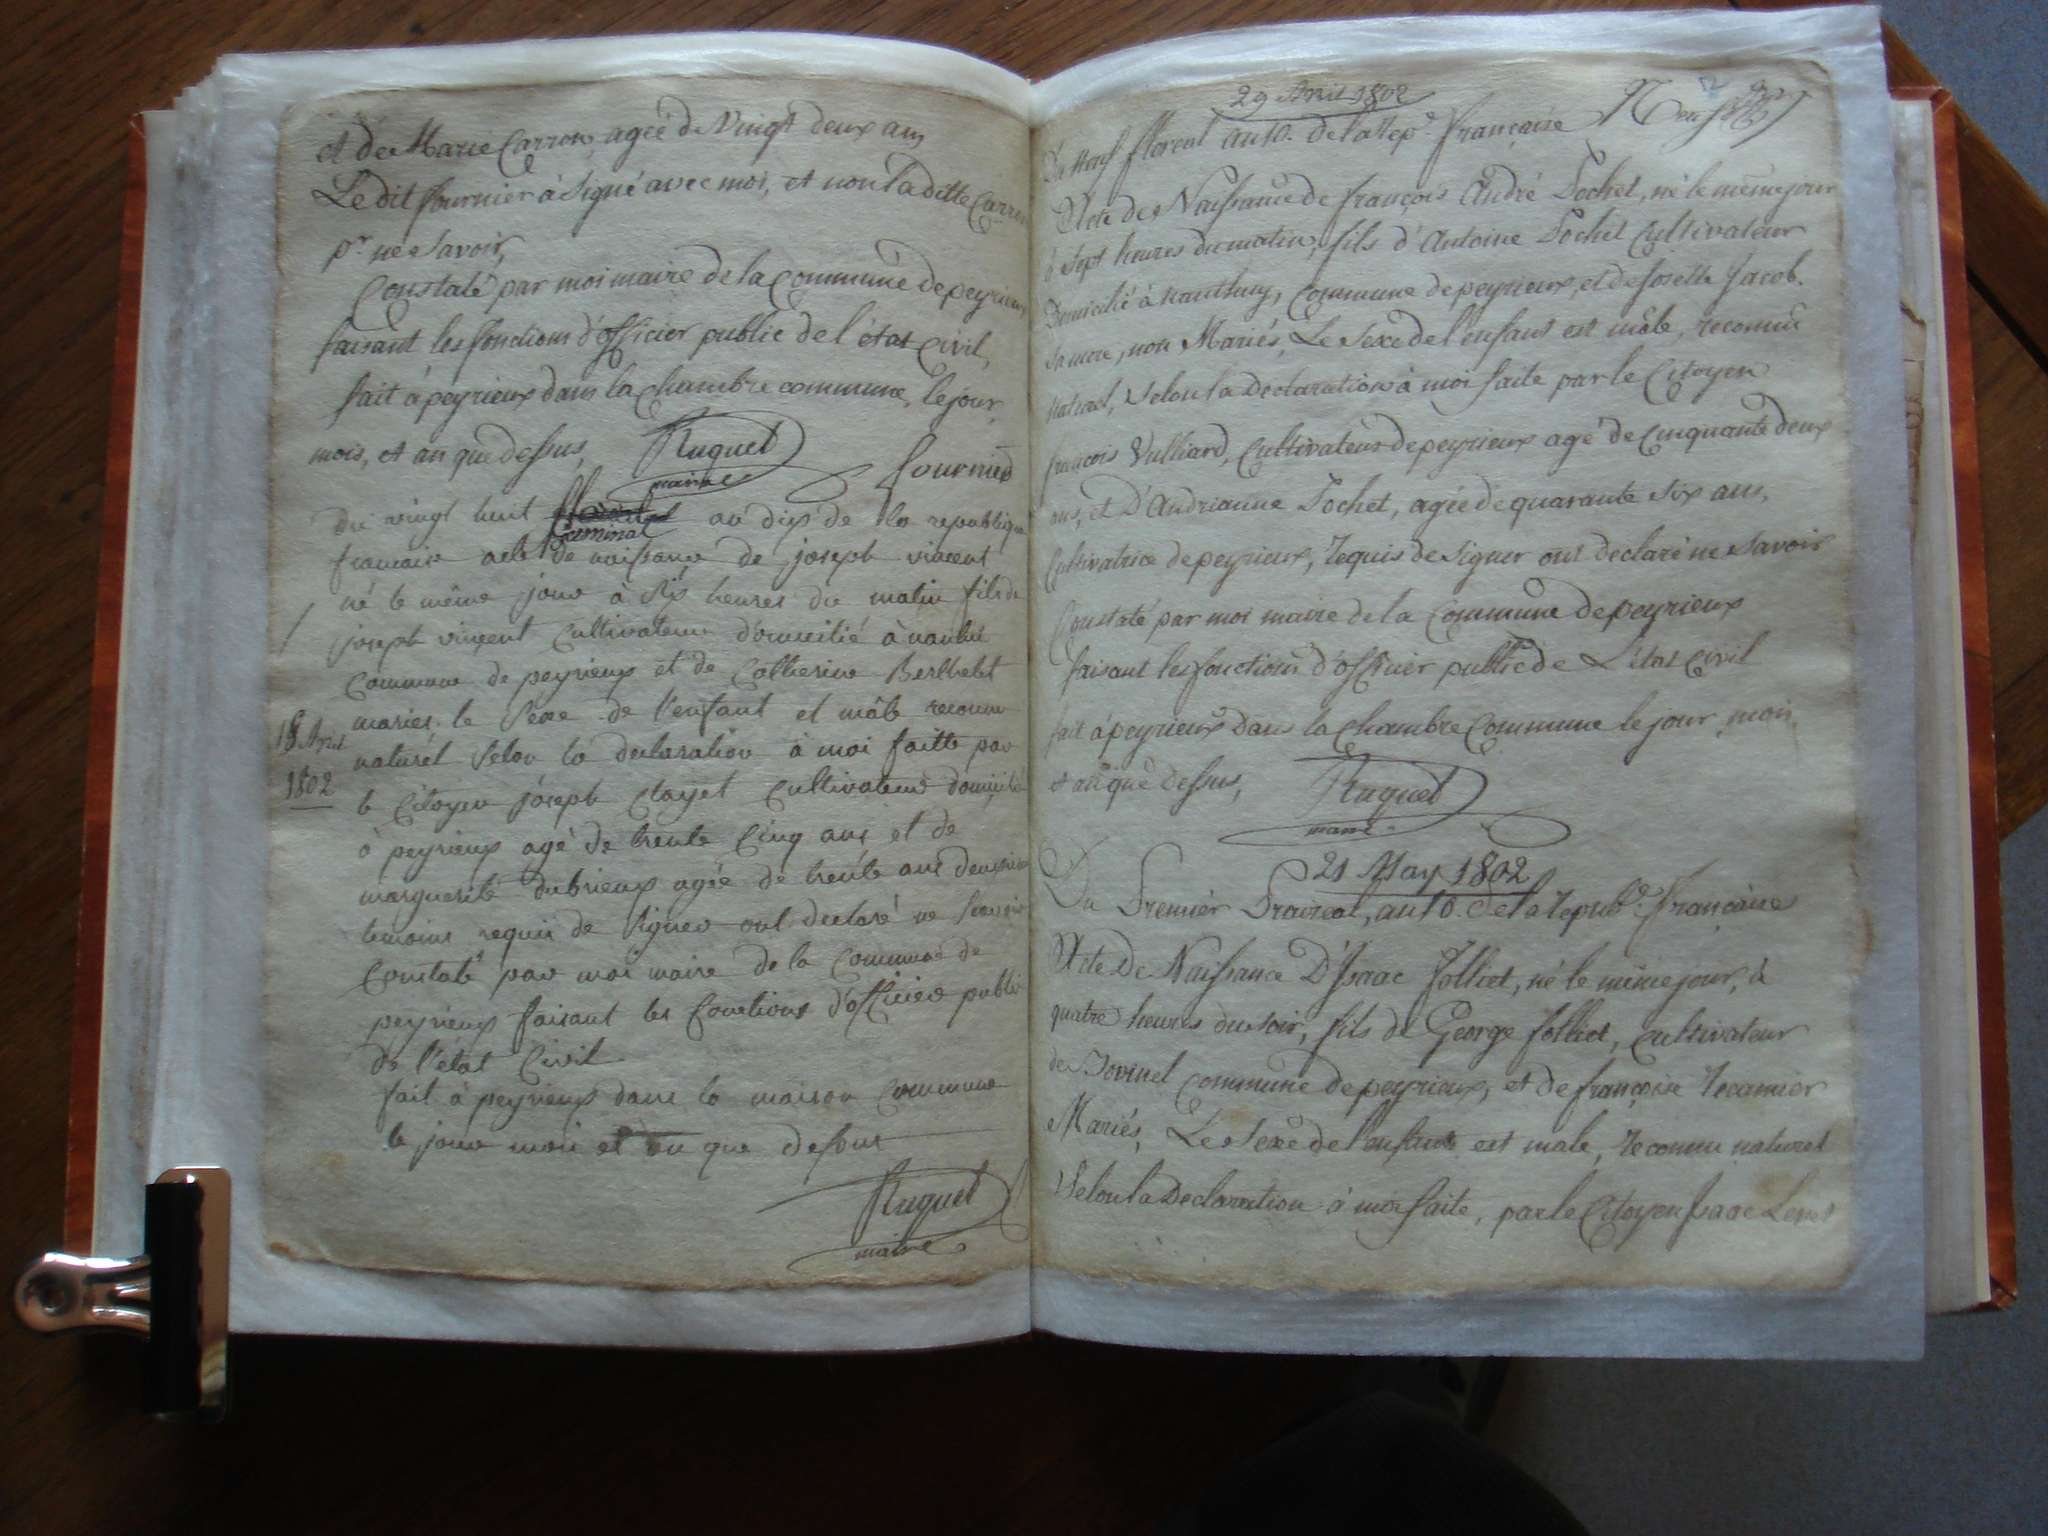 et de Marie Carron, agée de Vingt deux ans
Le dit fournier à Signé avec moi, et non la ditte Carron
pr ne Savoir,
Constaté par moi maire de la Commune de peyrieux
faisant les fonctions d'officier public de l'état Civil,
fait à peyrieux dans la Chambre commune, le jour,
mois, et an que dessus, Ruquet fournier
maire
du vingt huit an dix de la republique
Germinal
francaise acte de naissance de joseph vincent
né le même jour à Six heures du matin fils de
joseph vincent Cultivateur domicilié à
Commune de peyrieux et de Catherine Berthelet
mariés, le Sexe de l'enfant et mâle reconnu
18 Avril
naturel Selon la declaration à moi faitte par
1802
le Citoyen joseph Clayet Cultivateur domicilié
à peyrieux agé de trente Cinq ans et de
marguerite dubrieux agée de trente ans
temoins requis de Signer ont declaré ne Scavoir
Constaté par moi maire de la Commune de
peyrieux faisant les fonctions d'officier public
de l'état Civil
fait à peyrieux dans la maison Commune
le jour mois et an que dessus
Ruquet
maire
29 Avril 1802
Du Neuf floreal an 10. de la Repe. française
Acte de Naissance de françois André Pochet, né le même jour
à Sept heures du matin, fils d'Antoine Pochet Cultivateur
Domicilié à Nanthuy, Commune de peyrieux, et de Josette Jacob.
Sa mere, non Mariés, Le Sexe de l'enfant est mâle, reconnu
Naturel, Selon la Declaration à moi faite par le Citoyen
françois Vulliard, Cultivateur de peyrieux agé de Cinquante deux
ans, et D'Andrianne Pochet, agée de quarante Six ans,
Cultivatrice de peyrieux, Requis de Signer ont declaré ne Savoir
Constaté par moi maire de la Commune de peyrieux
faisant les fonctions d'officier public de L'état Civil
fait à peyrieux dans la Chambre Commune le jour, mois,
et an que dessus, Ruquet
maire
21 May 1802
Du Premier Prairéal, an 10. de la Repube. française
Acte de Naissance D'Isaac Jolliet, né le même jour, à
quatre heures du soir, fils de George Jolliet, Cultivateur
de Bovinel Commune de peyrieux, et de françoise Recamier
Mariés, Le Sexe de l'enfant est male, Reconnu naturel
Selon la Declaration à moi faite, par le Citoyen Isaac